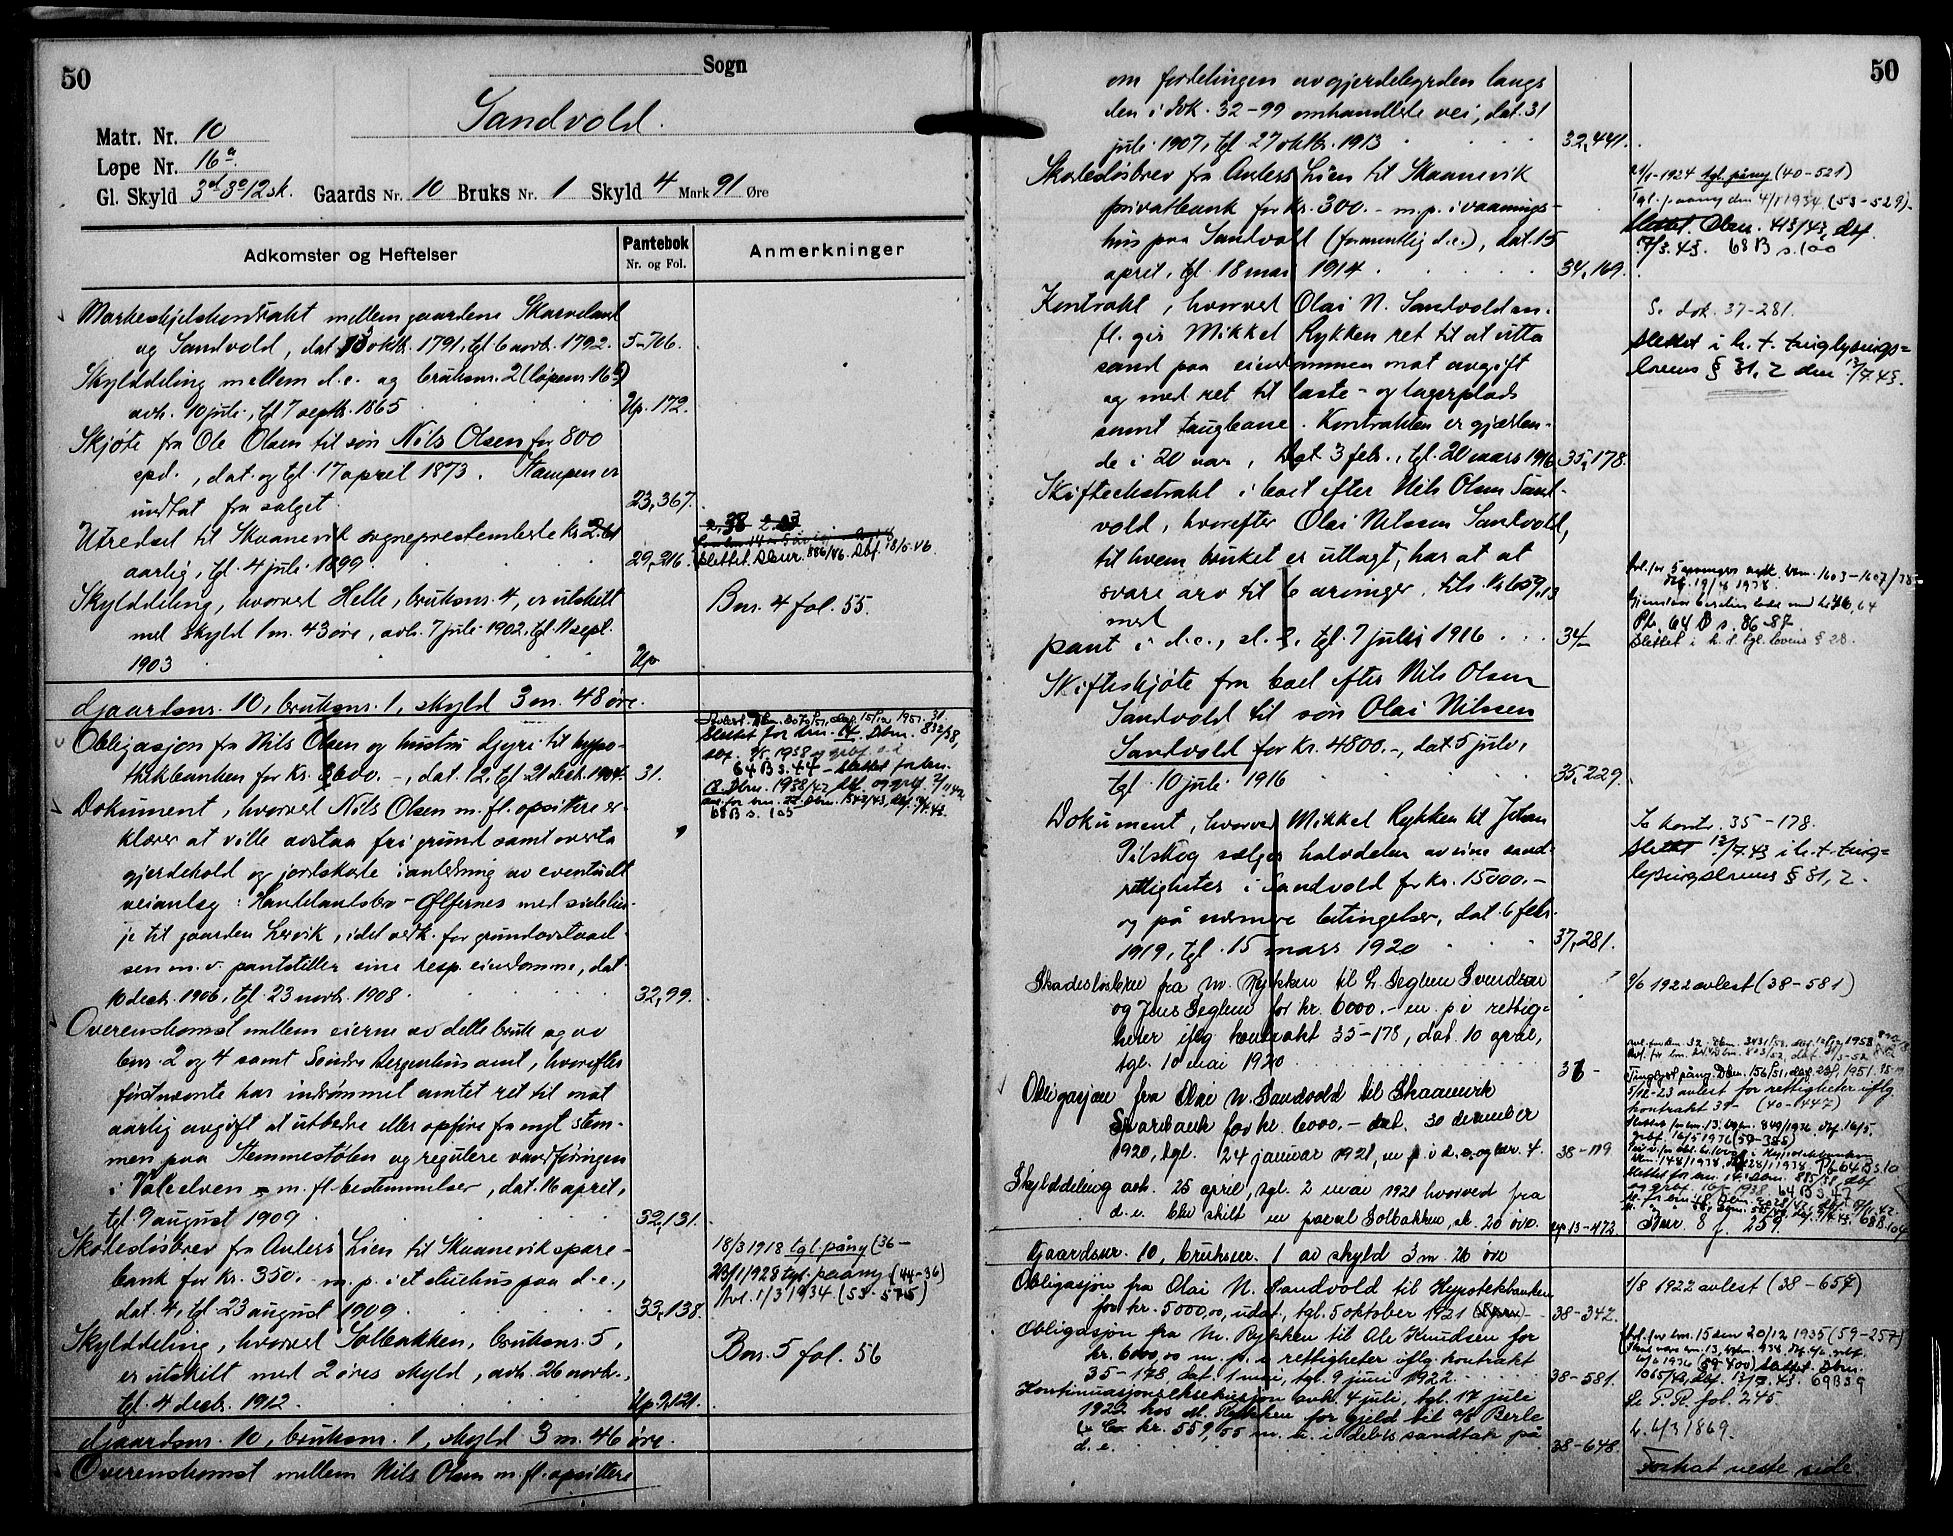 50
Sogn
Sandvold.
Matr. Nr. 10
Løpe Nr. 16a
Gl. Skyld 3d 3o 12 sk. Gaards Nr. 10 Bruks Nr. 1 Skyld 4 Mark 91 Øre
Adkomster og Heftelser
Pantebok
Nr. og Fol.
Anmerkninger
Markeskjelskontrakt mellem gaardene Skarveland
og Sandvold, dat. 13 oktb. 1791, tgl. 6 novb. 1792. 5-706.
Skylddeling mellem d.e. og bruksnr. 2 (løpenr. 16b)
avh. 10 juli, tgl 7 septb. 1865 Up. 172.
Skjøte fra Ole Olsen til søn Nils Olsen for 800
spd., dat. og tgl. 17 april 1873. Stampen er
undtat fra salget 23,367.
Utredsel til Skaanevik sogneprestembede kr 2.61
aarlig, tgl. 4 juli 1899. 29,216.
slettet Dbnr. 886/46. Dbf. 18/5.46.
Skylddeling, hvorved Helle, bruksnr. 4, er utskilt Bnr. 4 fol. 55.
med skyld 1 m. 43 øre, avh. 7 juli 1902, tgl. 11 sept.
1903 Up
Gaardsnr. 10, bruksnr. 1, skyld 3 m. 48 øre.
Obligasjon fra Nils Olsen og hustru Gyri til hypo-
thekbanken for kr. 3600.-, dat. 12, tgl 21 desb. 1904. 31.
64 B s. 44 - slettet for bnr.
68 B s. 105
Dokument, hvorved Nils Olsen m. fl. opsittere er-
klærer at ville avstaa fri grund samt overta
gjerdehold og jordskade i anledning av eventuelt
veianlæg: Handelandsbro - Ølfernes med sidelin-
je til gaarden Lervik, idet vedk. for grundavstaael-
sen m.v. pantstiller sine resp. eiendomme, dat.
10 desb. 1906, tgl. 23 novb. 1908. 32,99.
Overenskomst mellem eierne av dette bruk og av
bnr. 2 og 4 samt Søndre Bergenhus amt, hvorefter
førstnævnte har indrømmet amtet ret til mot
aarlig avgift at utbedre eller opføre fra nyt stem-
men paa Stemmestølen og regulere vandføringen
i Valeelven m. fl. bestemmelser, dat. 16 april,
tgl. 9 august 1909 32,131.
Skadesløsbrev fra Anders Lien til Skaanevik spare-
bank for kr. 350.- m. p. i et stuehus paa d.e.,
dat. 4, tgl 23 august 1909 33,138.
18/3 1918 tgl. påny (36-
23/1 1928 tgl. paany (44-36)
Avl. 1/3 1934 (53-575)
Skylddeling, hvorved Solbakken, bruksnr. 5, Bnr. 5 fol. 56
er utskilt med 2 øres skyld, avh. 26 novb.,
tgl. 4 desb. 1912. Up. 9,121.
Gaardsnr. 10, bruksnr. 1, skyld 3 m. 46 øre.
Overenskomst mellem Nils Olsen m. fl. opsittere
50
om fordelingen av gjerdebyrden langs
den i dok. 32-99 omhandlede vei, dat. 31
juli 1907, tgl 27 oktb. 1913 32,441.
Skadesløsbrev fra Anders Lien til Skaanevik
privatbank for kr. 300.- m. p. i vaanings-
hus paa Sandvold (formentlig d.e.), dat. 15
april, tgl. 18 mai 1914 34,169.
21/1-1924 tgl. påny (40-521)
Tgl. paany den 4/1 1934 (53-529).
slettet Dbnr. 413/43, Dbf.
17/3.43. 68 B s. 100
Kontrakt, hvorved Olai N. Sandvold m.
fl. gir Mikkel Rykken ret til at utta
sand paa eiendommen mot avgift
og med ret til laste- og lagerplads
samt taugbane. Kontrakten er gjælden-
de i 20 aar. Dat 3 feb., tgl. 20 mars 1916 35,178.
Se dok. 37-281.
slettet i h. t. tinglysings-
lovens § 31, 2 den 13/7.43.
Skifteekstrakt i boet efter Nils Olsen Sand-
vold, hvorefter Olai Nilssen Sandvold,
til hvem bruket er utlagt, har at
svare arv til 6 arvinger, tils. kr 659,13
med
pant i d.e., tgl. 7 juli 1916. 34-
Pb. 64 B s. 86-87.
Slettet i h. t. tgl. lovens § 28.
Skifteskjøte fra boet efter Nils Olsen
Sandvold til søn Olai Nilssen
Sandvold for kr. 4800.-, dat. 5 juli,
tgl. 10 juli 1916 35,229.
Dokument, hvorved Mikkel Rykken til Johan
Pilskog sælger halvdelen av sine sand-
rettigheter i Sandvold for kr. 15000.-
og på nærmere betingelser, dat. 6 feb.
1919, tgl. 15 mars 1920 37,281.
Se kontr. 35-178.
slettet 13/7.43 i h. t. ting-
lysingslovens § 31, 2.
Skadesløsbrev fra M. Rykken til L. Seglem Svendsen
og Jens Seglem for kr. 6000.- m. p. i rettig-
heter iflg. kontrakt 35-178, dat. 10 april,
tgl. 10 mai 1920
9/6 1922 avlest (38-581)
Obligasjon fra Olai N. Sandvold til Skaanevik
Sparebank for kr. 6000.- dat. 30 desember
1920, tgl. 24 januar 1921, m p. i d.e. og bnr. 4. 38-119
5/12-23 avlest for rettigheter iflg.
kontrakt 35- (40-447)
Skylddeling avh. 25 april, tgl. 2 mai 1921 hvorved fra
d.e. blev skilt en parsel Solbakken, sk. 20 øre. Up 13-472.
Bnr. 8 f. 259.
Gaardsnr. 10, bruksnr. 1 av skyld 3 m. 26 øre
Obligasjon fra Olai N. Sandvold til Hypotekbanken
for kr. 5000,00, udat., tgl. 5 oktober 1921 38-342.
1/8 1922 avlest (38-657)
Obligasjon fra M. Rykken til Ole Knudsen for
kr. 6000,00 m. p. i rettigheter iflg. kontrakt
35-178, dat. 1 mai, tgl. 9 juni 1922. 38-581.
Avl. for bnr. 15 den 20/12 1935 (59-257)
Kontinuasjonseksekusjon avh. 4 juli, tgl. 17 juli
1922 hos M. Rykken for gjeld til a/s Berle
& Co kr. 559,55 m. u. i dettes sandtak på
d.e. 38-648.
Se P. R. fol. 245.
6/3 1869.
Fortsat neste side.